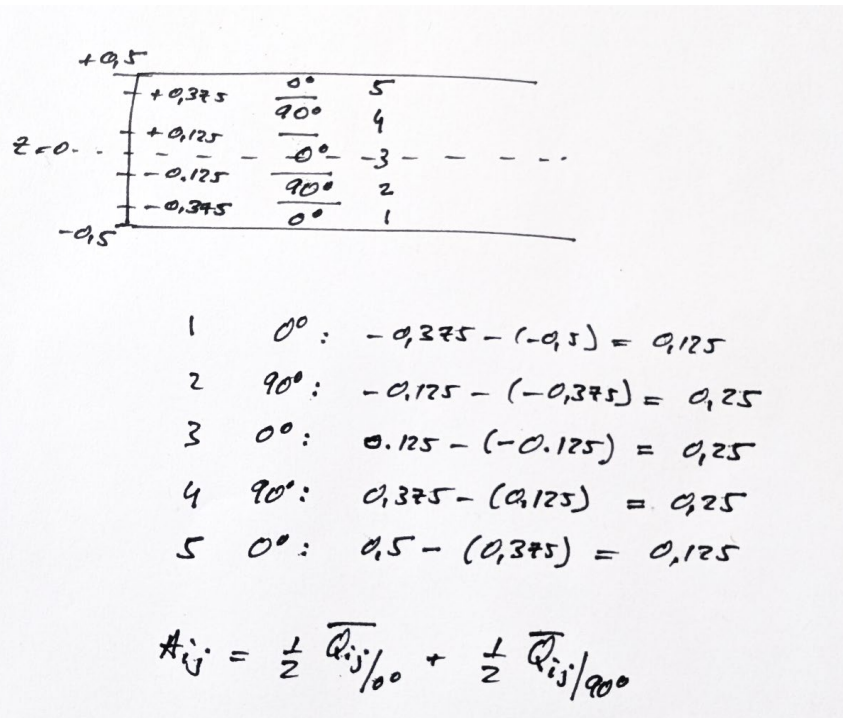 +0,5
+0,375 0° 5
90° 4
+0,125
z=0 0° 3
-0.125 90° 2
-0,375 0° 1
-0,5
1 0° : -0,375 - (-0,5) = 0,125
2 90° : -0.125 - (-0,375) = 0,25
3 0° : 0.125 - (-0.125) = 0,25
4 90° : 0,375 - (0,125) = 0,25
5 0° : 0,5 - (0,375) = 0,125
Aij = 1/2 Q̅ij/0° + 1/2 Q̅ij/90°